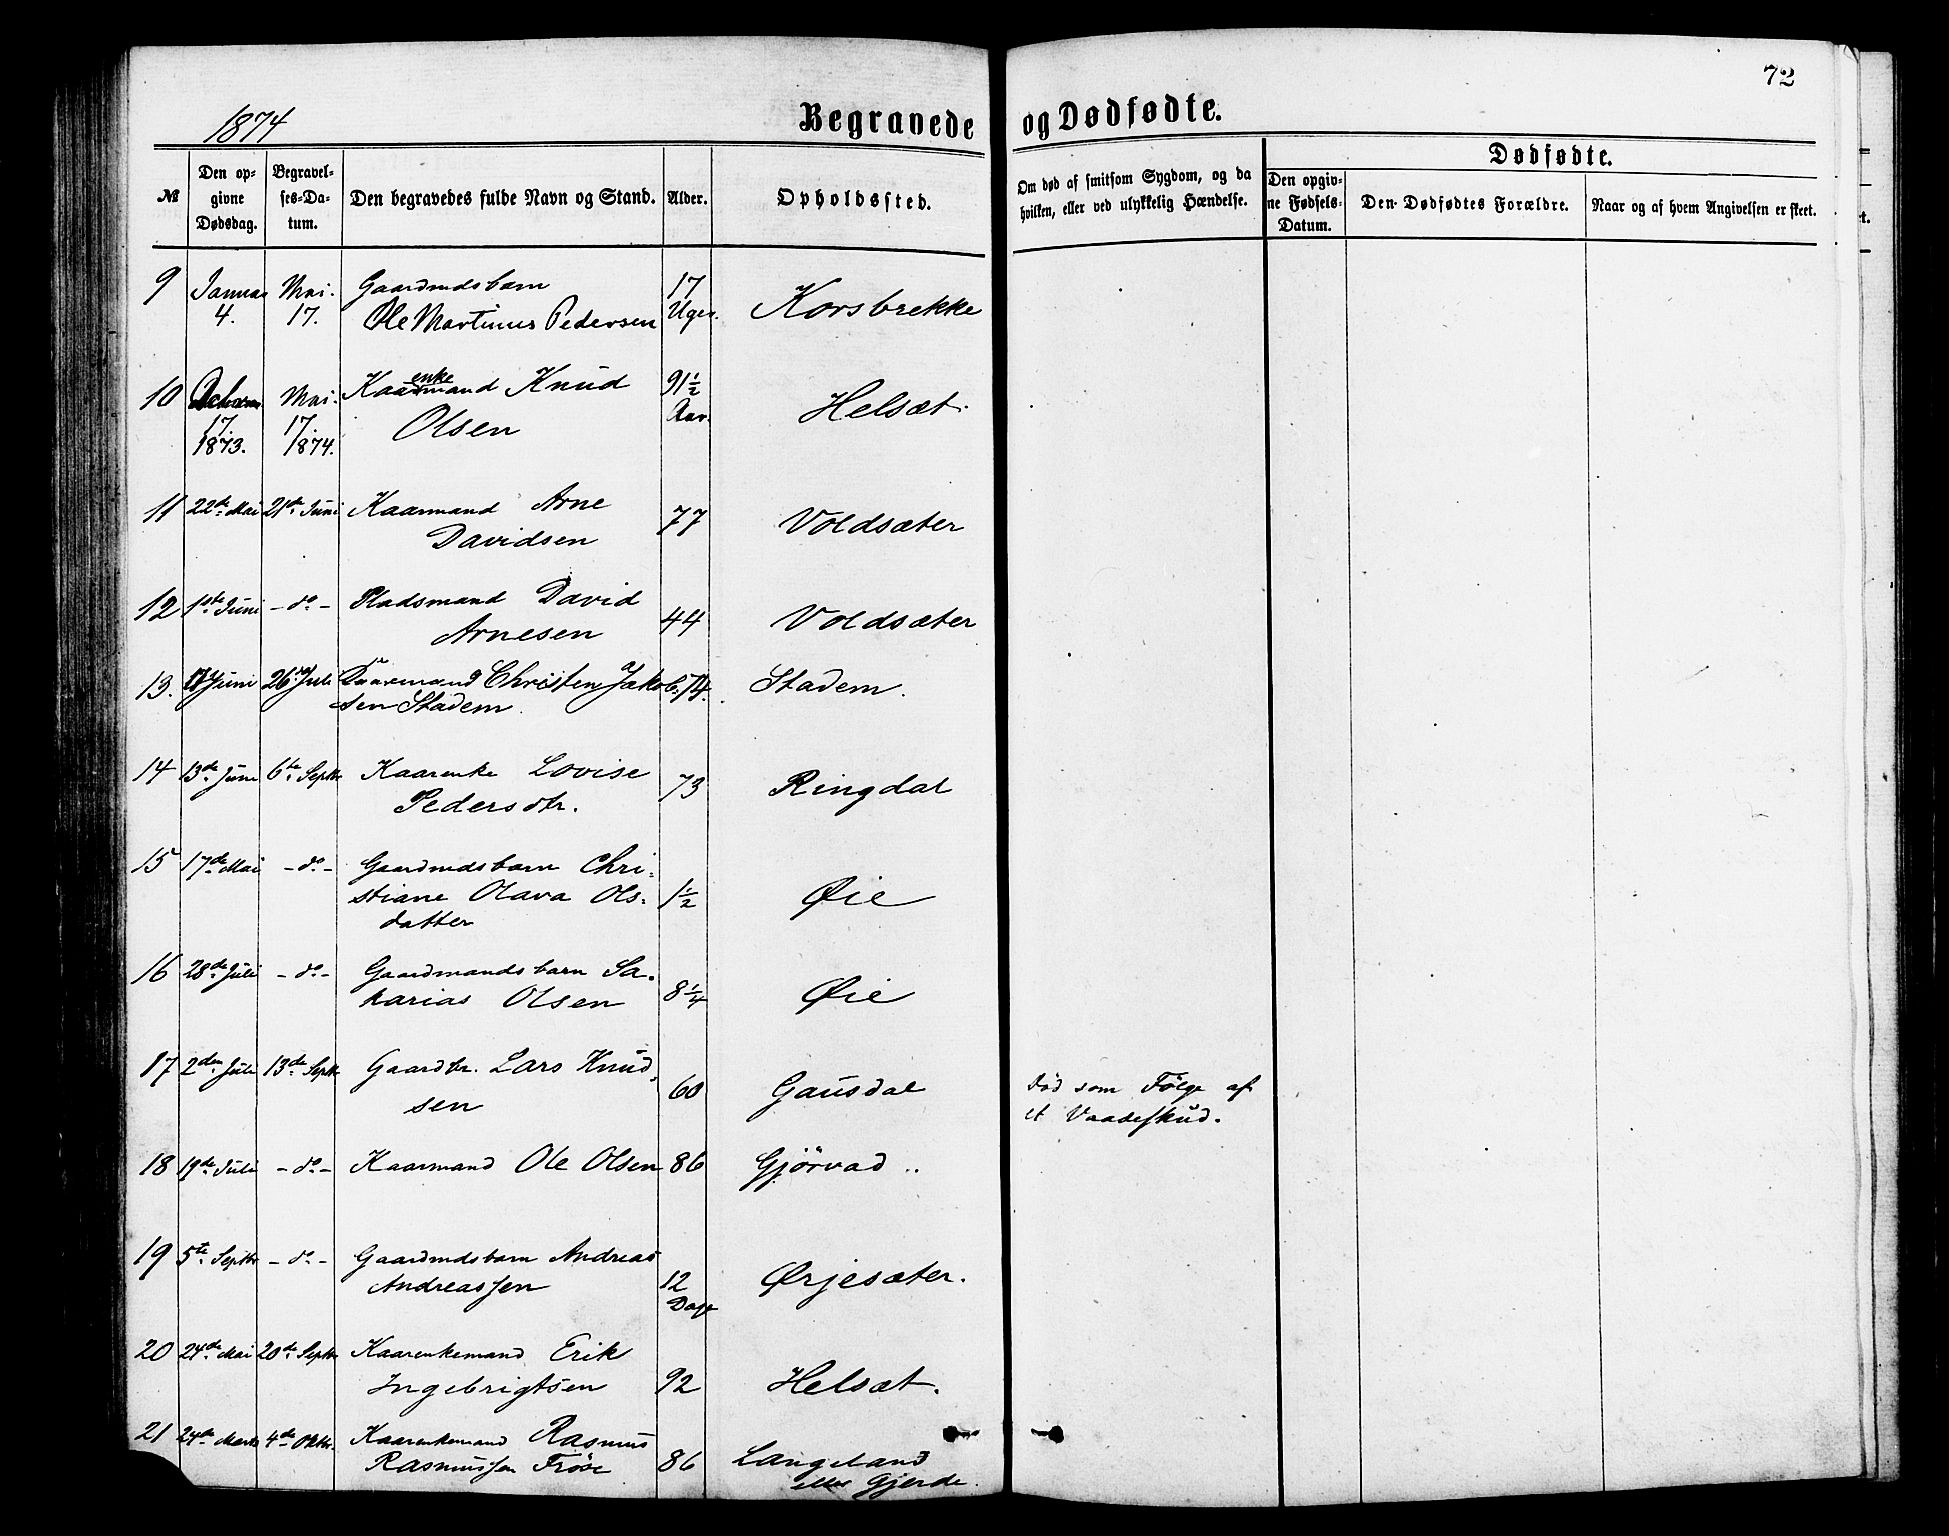 72
1874
Begravede og Dødfødte.
№
Den op-
givne
Dødsdag.
Begravel-
ses-Da-
tum.
Den begravedes fulde Navn og Stand.
Alder.
Opholdssted.
Om død af smitsom Sygdom, og da
hvilken, eller ved ulykkelig Hændelse.
Dødfødte.
Den opgiv-
ne Fødsels-
Datum.
Den Dødfødtes Forældre.
Naar og af hvem Angivelsen er skeet.
9 Januar Mai. Gaardmdsbarn 17
4. 17. Ole Martinus Pedersen Uger. Korsbrekke
enke
10 Mai. Kaarmand Knud 91½
17. 17. Olsen Aar. Helsæt.
1873. 1874.
11 22de Mai 21de Juni Kaarmand Arne
Davidsen 77 Voldsæter
12 1ste Juni - do - Pladsmand David
Arnesen 44 Voldsæter
13. Juni 26 Juli Kaarmand Christen Jakob. 74. Stadem.
sen Stadem.
14 13de Juni 6te Septbr Kaarenke Lovise
Pedersdtr. 73 Ringdal
15 17de Mai - do - Gaardmdsbarn Chri-
stiane Olava Ols- 1½ Øie
datter
16 28de Juli - do - Gaardmandsbarn Sa-
karias Olsen 8¼ Øie
17 2den Juli 13de Septbr Gaardbr. Lars Knud-
sen 60 Gausdal
Død som Følge af
et Vaadeskud.
18 19de Juli - do - Kaarmand Ole Olsen 86 Gjörvad ..
19 5te Septbr - do - Gaardmdsbarn Andreas
Andreassen 12 Ørjesæter.
Dage
20 24de Mai 20de Septbr Kaarenkemand Erik
Ingebrigtsen 92 Helsæt.
21 24de Marts 4de Oktbr. Kaarenkemand Rasmus
Rasmussen Fröse 86 Langeland
eller Gjerde.